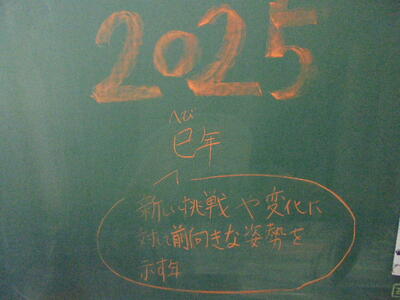 2025
へび
巳年
新しい挑戦や変化に
対して前向きな姿勢を
示す年